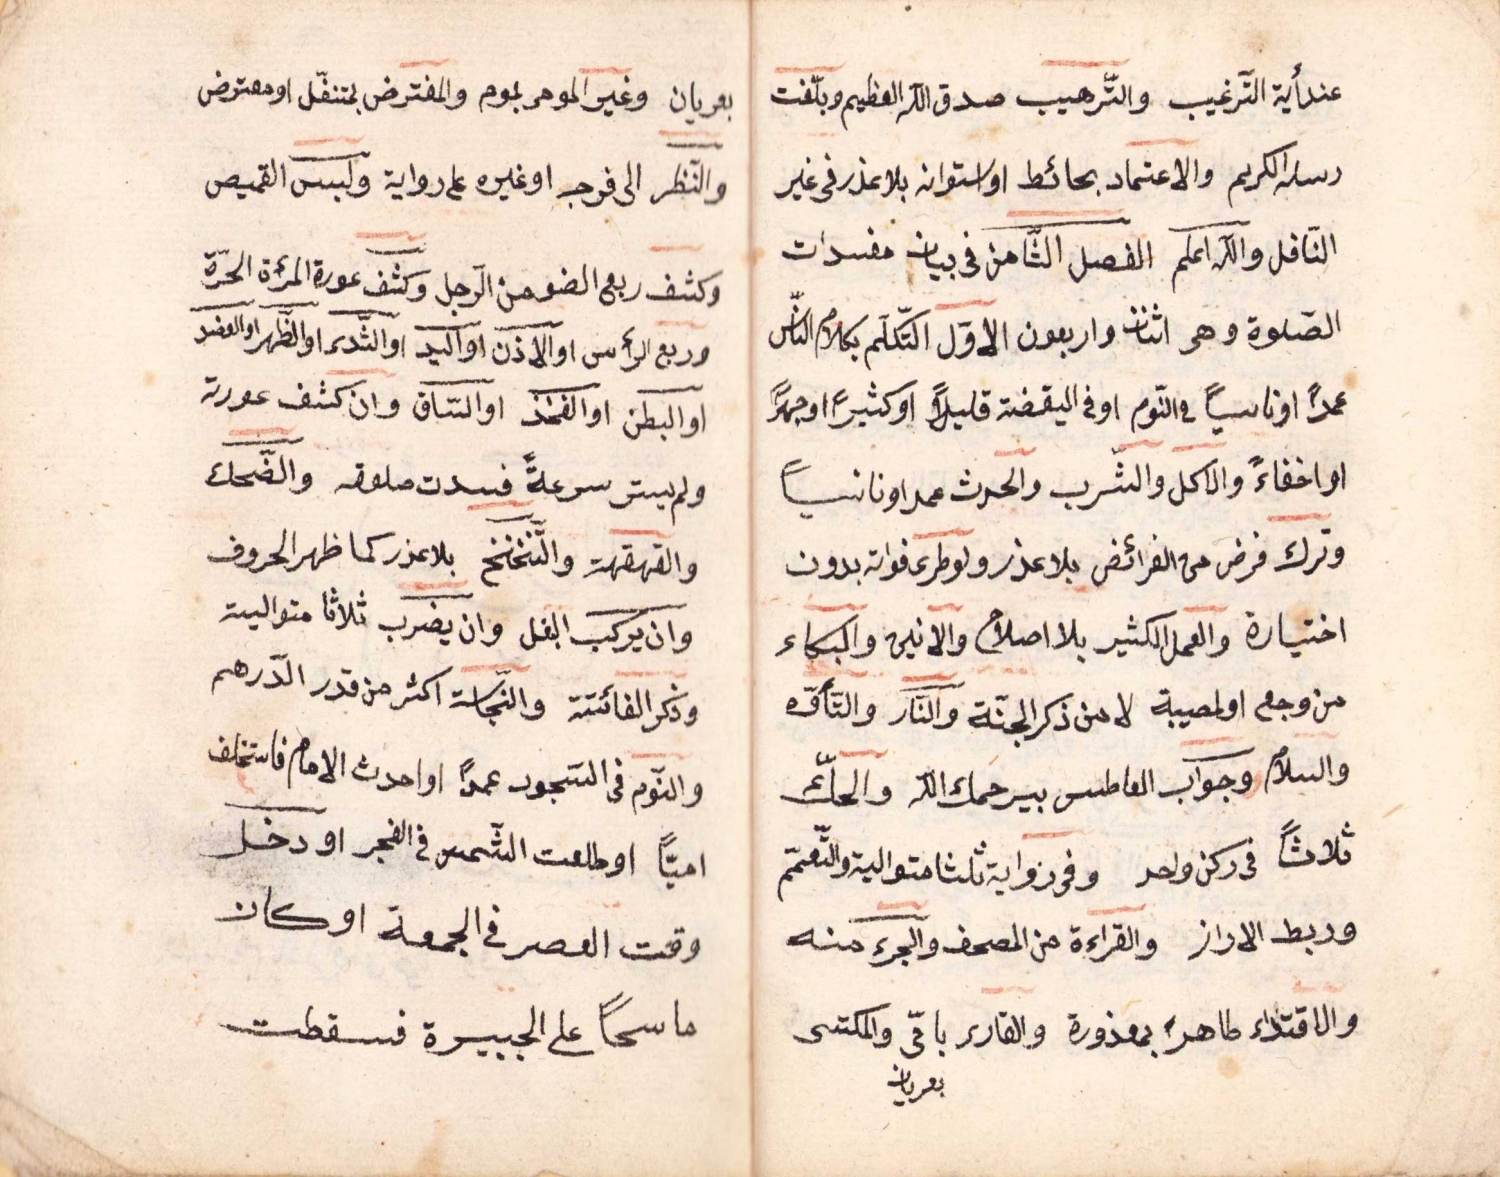 عند أية الترغيب والتّرهيب صدق اللّه العظيم وبلّغت
رسله الكريم والاعتماد بحائط او استوانه بلا عذر فى غير
النّافل واللّه اعلم الفصل الثّامن فى بيان مفسدات
الصّلوة وهى اثنان واربعون الاوّل التّكلّم بكلام النّاس
عمداً او ناسياً فى النّوم او فى اليقضة قليلاً او كثيراً او جهراً
او اخفاءً والاكل والشّرب والحدث عمدا او ناسياً
وترك فرض من الفرائض بلا عذر ولو طرئ فواته بدون
اختيارة والعمل الكثير بلا اصلاح والانين والبكاء
من وجع او لمصيبة لا من ذكر الجنّة والنّار والتّأفّه
والسلام وجواب العاطس بيرحمك اللّه والحكّ
ثلاثاً فى ركن واحد وفى رواية ثلثا متوالية والتّعمّم
وربط الازار والقراءة من المصحف والجرء منه
والاقتداء طاهر بمعذورة والقارى بامّى والمكتسى
بعريان
بعريان وغير المومى بموم والمفترض بمتنفّل او مفترض
والنّظر الى فوجه او غيره على رواية ولبس القميص
وكشف ربع العضو من الرّجل وكشف عورة المرئة الحرّة
وربع الرأس او الاذن او اليد او الثّدى او الظّهر او العضد
او البطن او الفخذ او السّاق وان كشف عورته
ولم يستر سرعةً فسدت صلوته والضّحك
والقهقهة والتّنخنخ بلا عذر كما ظهر الحروف
وان يركب البغل وان يضرب ثلاثا متوالية
وذكر الفائتة والنّجاسة اكثر من قدر الدّرهم
والنّوم فى السّجود عمداً او احدث الامام فاستخلف
اميّاً او طلعت الشّمس فى الفجر او دخل
وقت العصر فى الجمعة او كان
ماسحاً على الجبيرة فسقطت